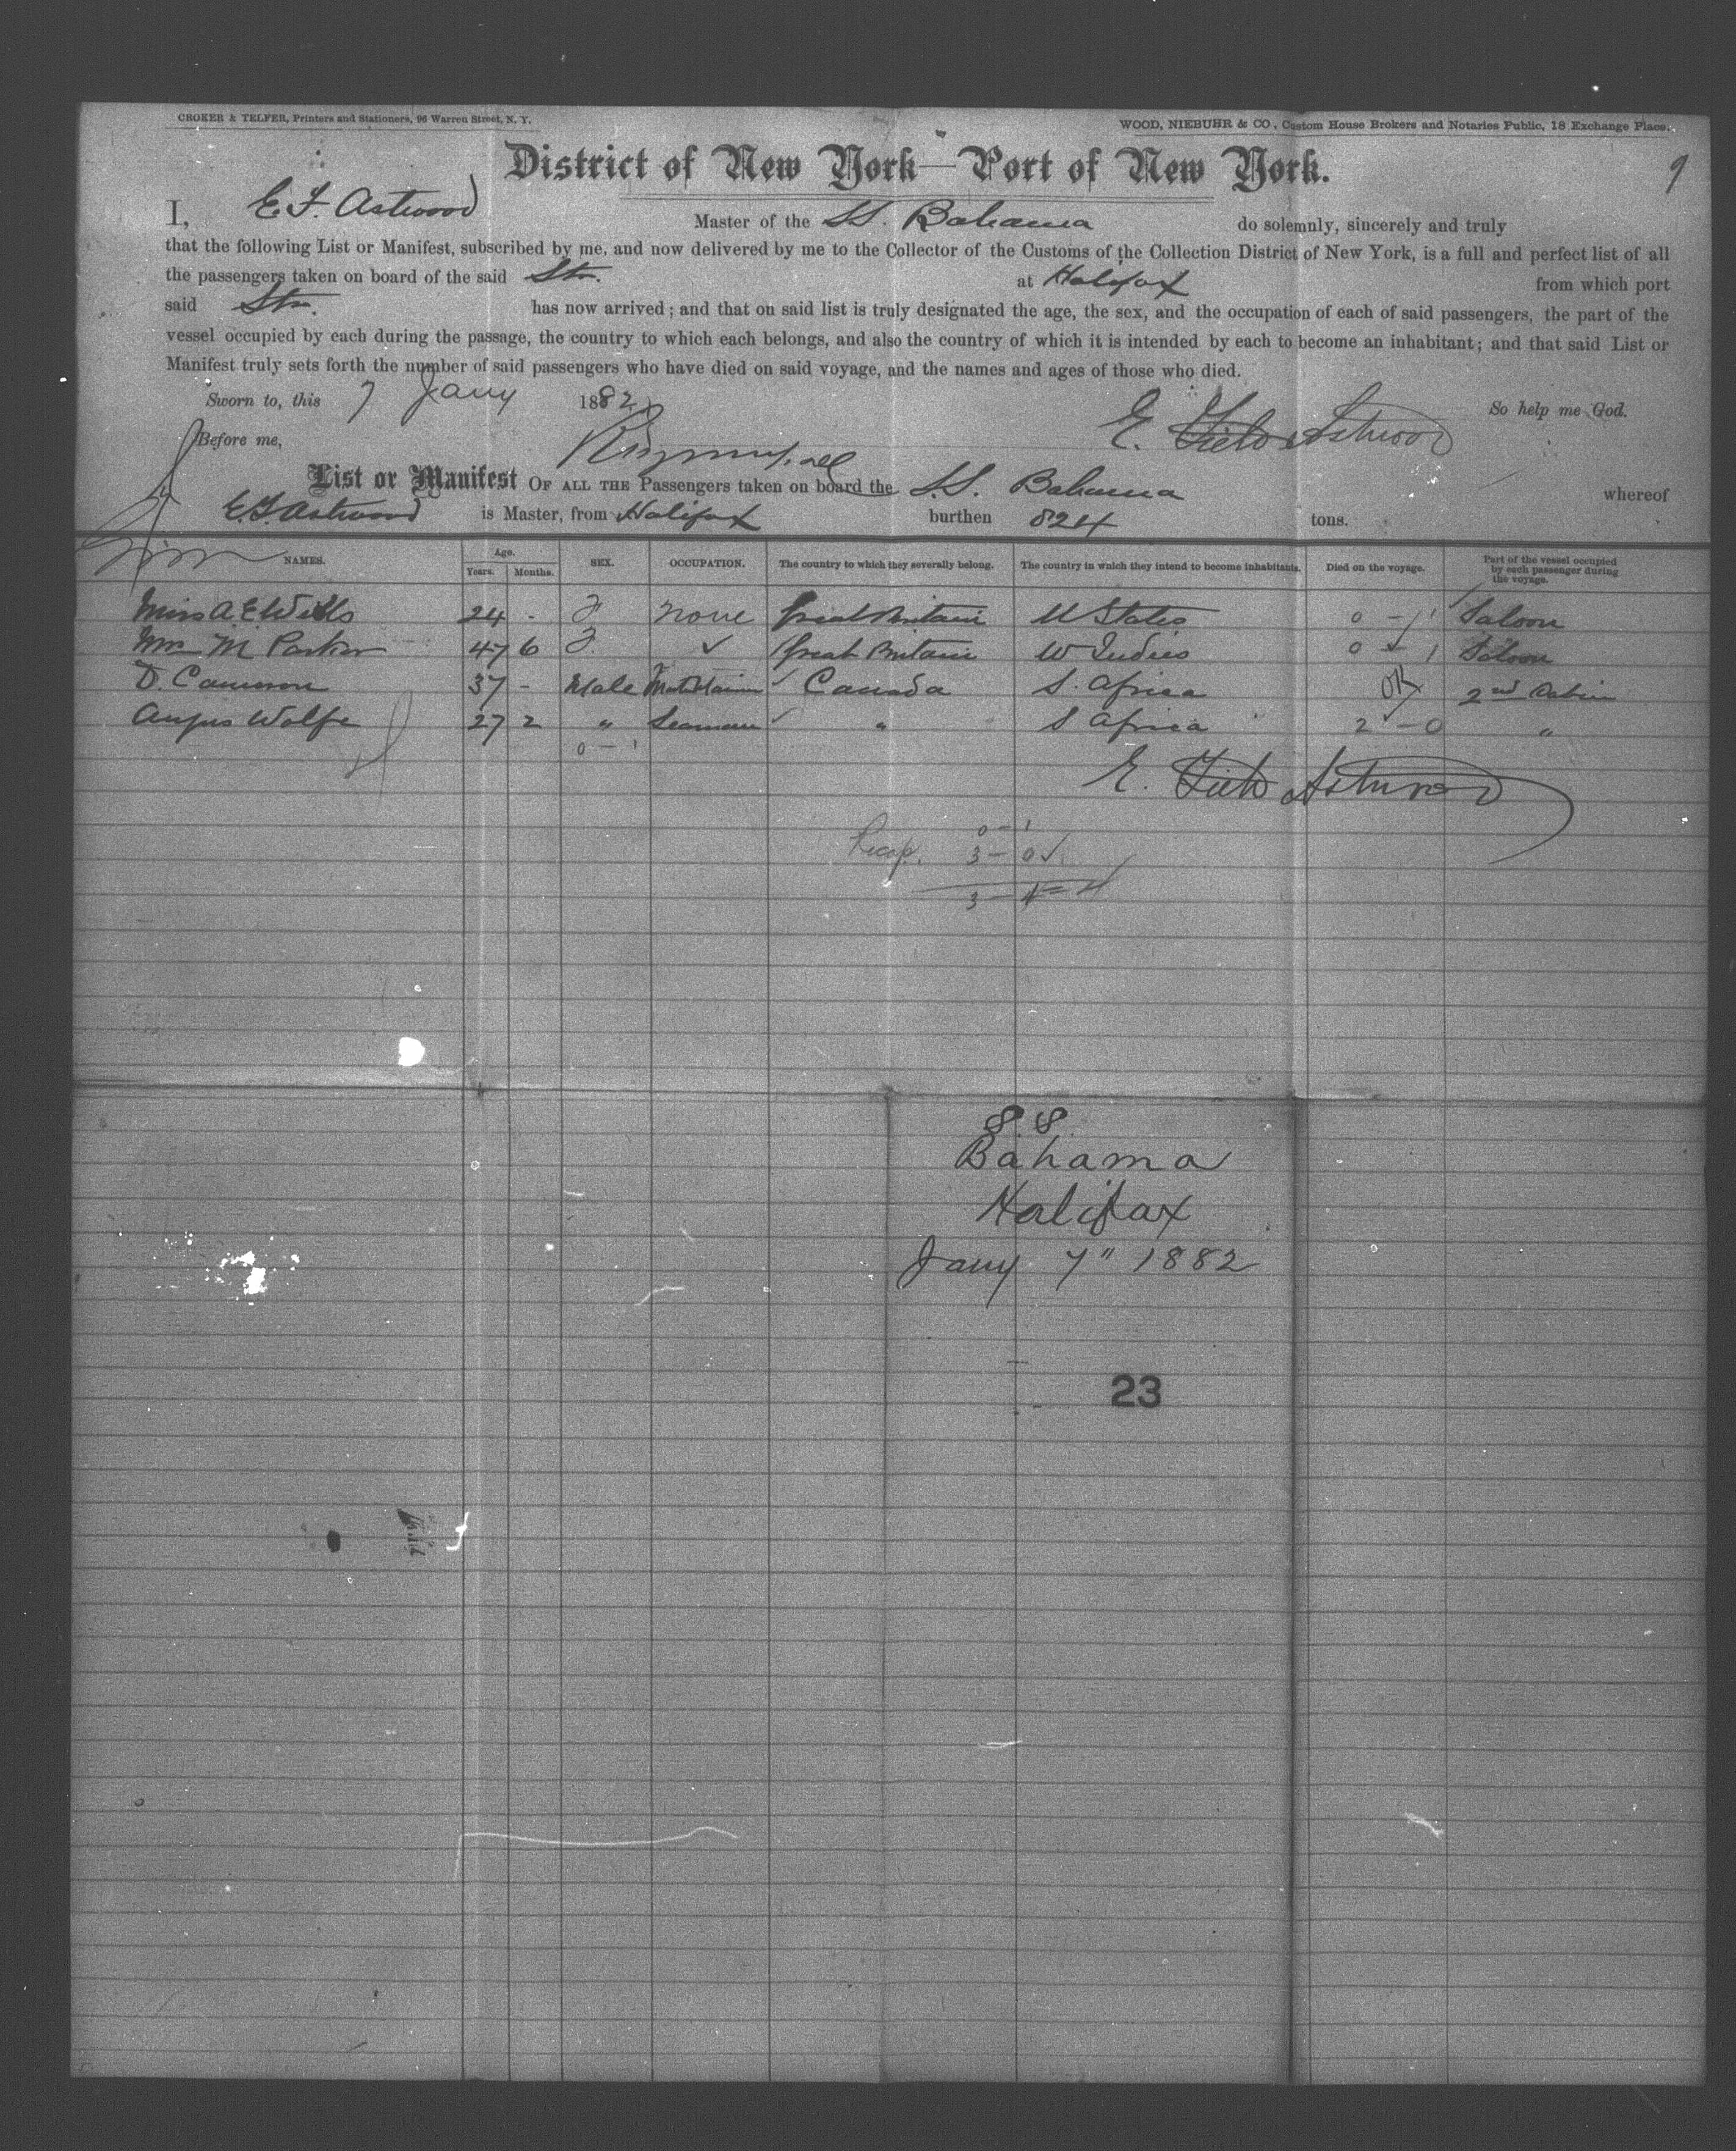 CROKER & TELFER, Printers and Stationers, 96 Warren Street, N. Y.
WOOD, NIEBUHR & CO., Custom House Brokers and Notaries Public, 18 Exchange Place.
District of New York—Port of New York.
9
I, E. F. Astwood Master of the S.S. Bahama do solemnly, sincerely and truly
that the following List or Manifest, subscribed by me, and now delivered by me to the Collector of the Customs of the Collection District of New York, is a full and perfect list of all
the passengers taken on board of the said Str. at Halifax from which port
said Str. has now arrived; and that on said list is truly designated the age, the sex, and the occupation of each of said passengers, the part of the
vessel occupied by each during the passage, the country to which each belongs, and also the country of which it is intended by each to become an inhabitant; and that said List or
Manifest truly sets forth the number of said passengers who have died on said voyage, and the names and ages of those who died.
Sworn to, this 7 Jany 1882 So help me God.
Before me, E. Field Astwood
List or Manifest OF ALL THE Passengers taken on board the S.S. Bahama whereof
E. F. Astwood is Master, from Halifax burthen 824 tons.
NAMES. Age. Years. Months. SEX. OCCUPATION. The country to which they severally belong. The country in which they intend to become inhabitants. Died on the voyage. Part of the vessel occupied by each passenger during the voyage.
Miss A. E. Wells 24 - F none Great Britain U States 0 - 1 Saloon
Mrs M Parker 47 6 F. ✓ Great Britain W Indies 0 - 1 Saloon
D. Cameron 37 - Male Canada S. Africa OK 2nd Cabin
Angus Wolfe 27 2 " Seaman " S Africa 2 - 0 "
0 - 1
E. Field Astwood
0 - 1
Recap. 3 - 0 ✓
3 - 4 = 4
S.S.
Bahama
Halifax
Jany 7" 1882
23